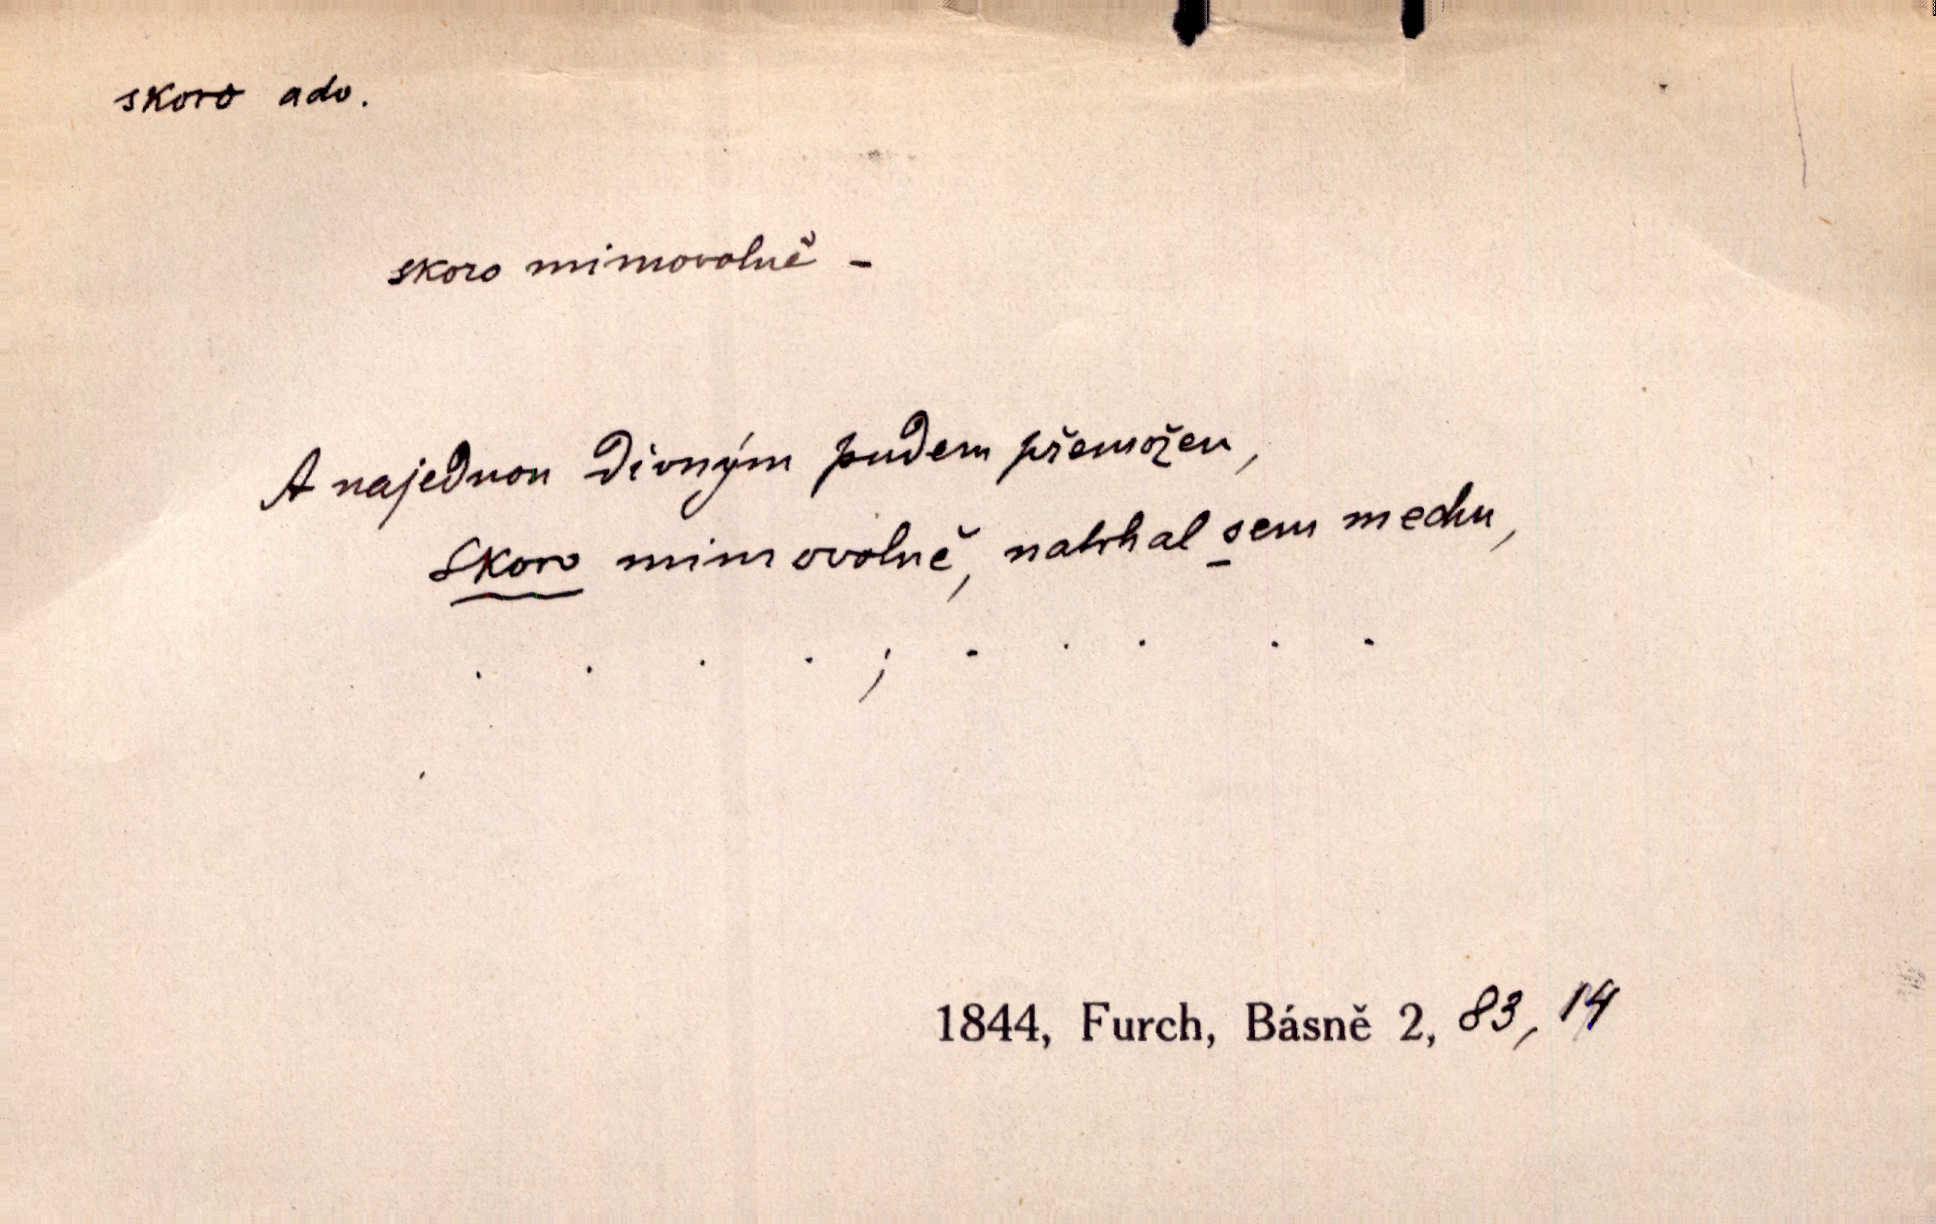 skoro adv.
skoro mimovolně -
A najednou divným pudem přemožen,
Skoro mimovolně, natrhal sem mechu,
. . . . ; . . . . .
1844, Furch, Básně 2, 83, 14